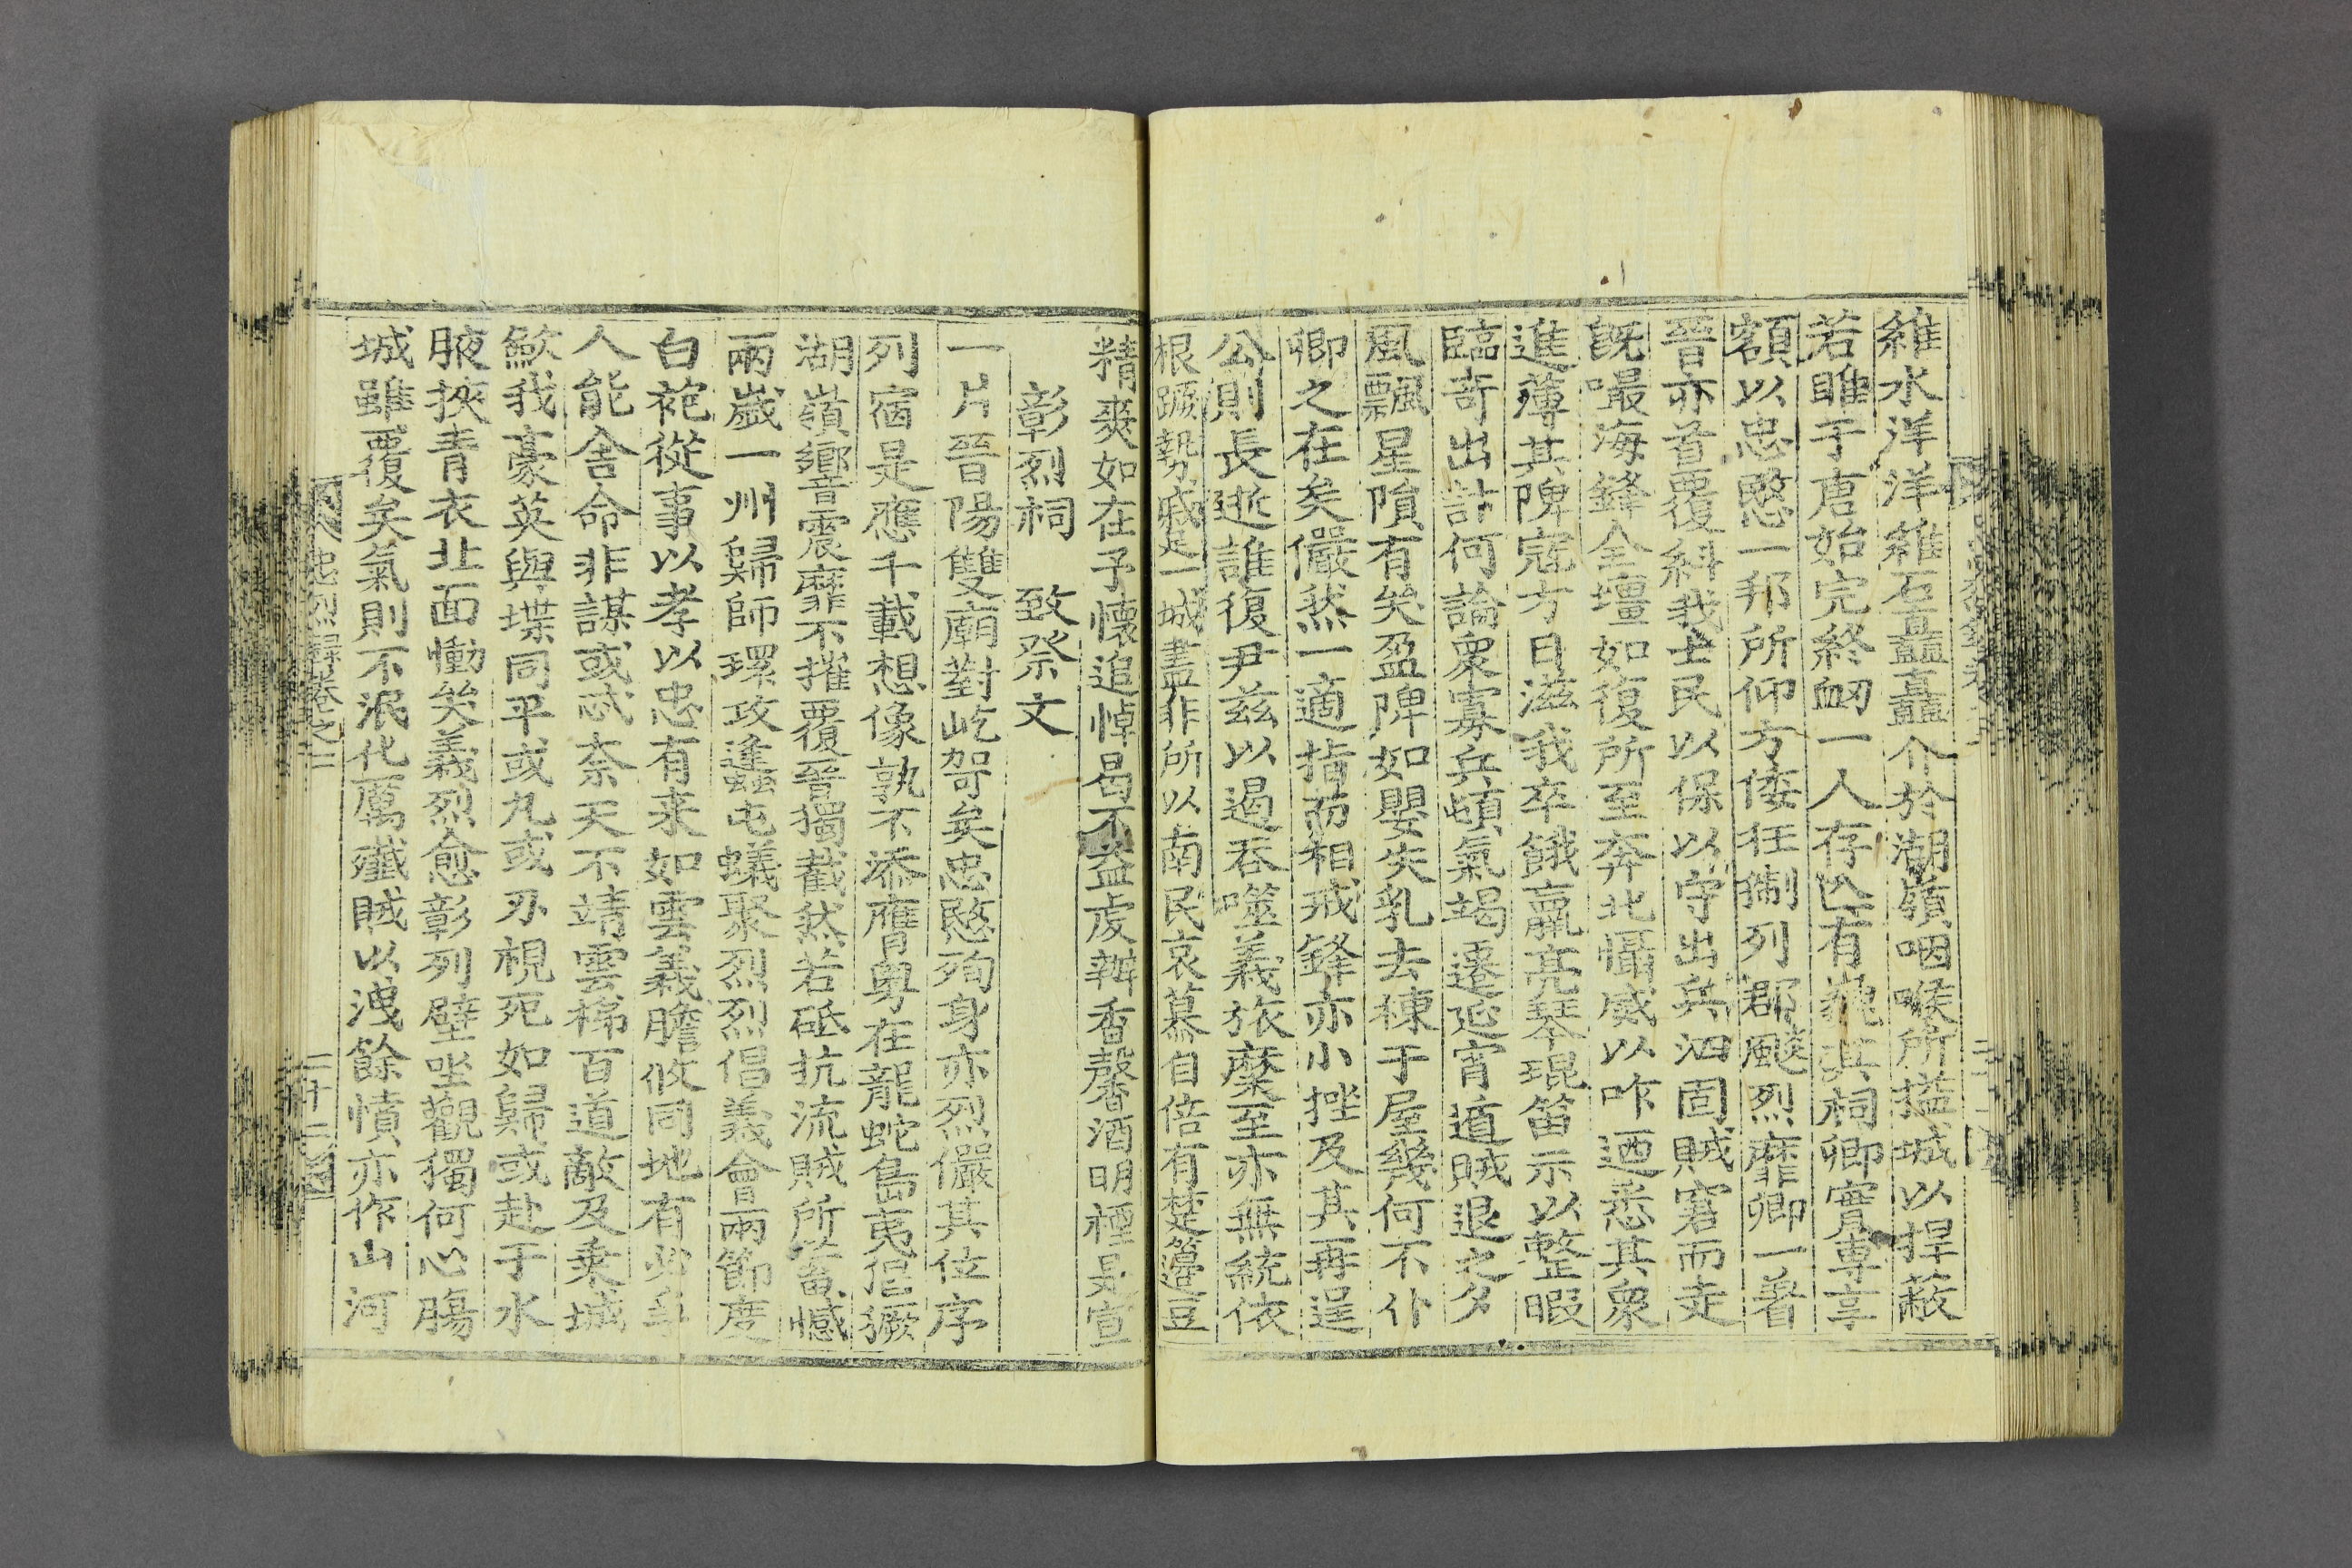 維水洋洋維石矗矗介於湖嶺咽喉所搤城以捍蔽
若睢于唐始完終衂一人存亡有巍其祠卿實專享
額以忠愍一邦所仰方倭狂猘列郡颷烈靡卿一著
晉亦首覆糾我士民以保以守出兵泗固賊窘而走
旣嘬海鋒全壇如復所至奔北懾威以咋迺悉其衆
進薄其陴寇方日滋我卒餓羸亮琴琨笛示以整暇
臨奇出計何論衆寡兵頓氣竭遷延宵遁賊退之夕
風飄星隕有矣盈陴如嬰失乳去棟于屋幾何不仆
卿之在矣儼然一適指而相戒鋒亦小挫及其再逞
公則長逝誰復尹玆以遏吞噬義旅縻至亦無統依
根蹶勢蹙足一城盡非所以南民哀慕自倍有楚籩豆
精爽如在予懷追悼曷不益虔瓣香馨酒明禋是宣
彰烈祠 致祭文
一片晉陽雙廟對屹哿矣忠愍殉身亦烈儼其位序
列宿是應千載想像孰不添膺粤在龍蛇島夷猖獗
湖嶺響震靡不摧覆晉獨截然若砥抗流賊所蓄憾
兩歲一州歸師環攻蜂屯蟻聚烈烈倡義會兩節度
白袍從事以孝以忠有来如雲義膽攸同地有必爭
人能舍命非謀或忒柰天不靖雲梯百道敵及乗城
歟我豪英與堞同平或丸或刃視死如歸或赴于水
腋挾青衣北面慟矣義烈愈彰列壁坐觀獨何心膓
城雖覆矣氣則不泯化厲殲賊以洩餘憤亦作山河
忠烈錄卷之三 二十二